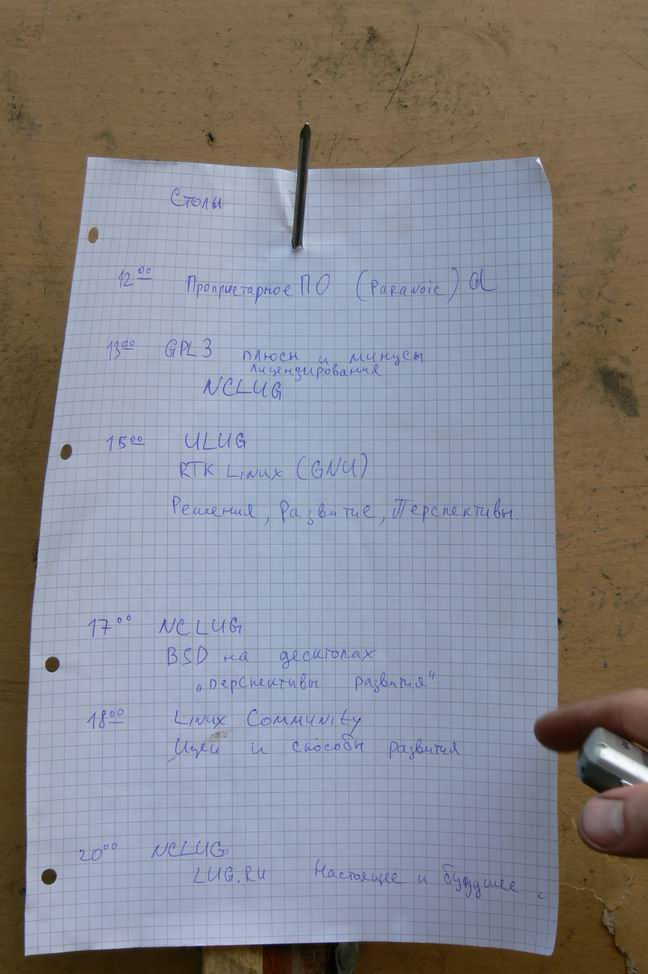 Столы
12⁰⁰ Проприетарное ПО (Paranoic) d
13⁰⁰ GPL3 плюсы и минусы
лицензирования
NCLUG
15⁰⁰ ULUG
RTK Linux (GNU)
Решения, Развитие, Перспективы.
17⁰⁰ NCLUG
BSD на десктопах
„перспективы развития“
18⁰⁰ Linux Community
Идеи и способы развития
20⁰⁰ NCLUG
LUG.RU Настоящее и будущее